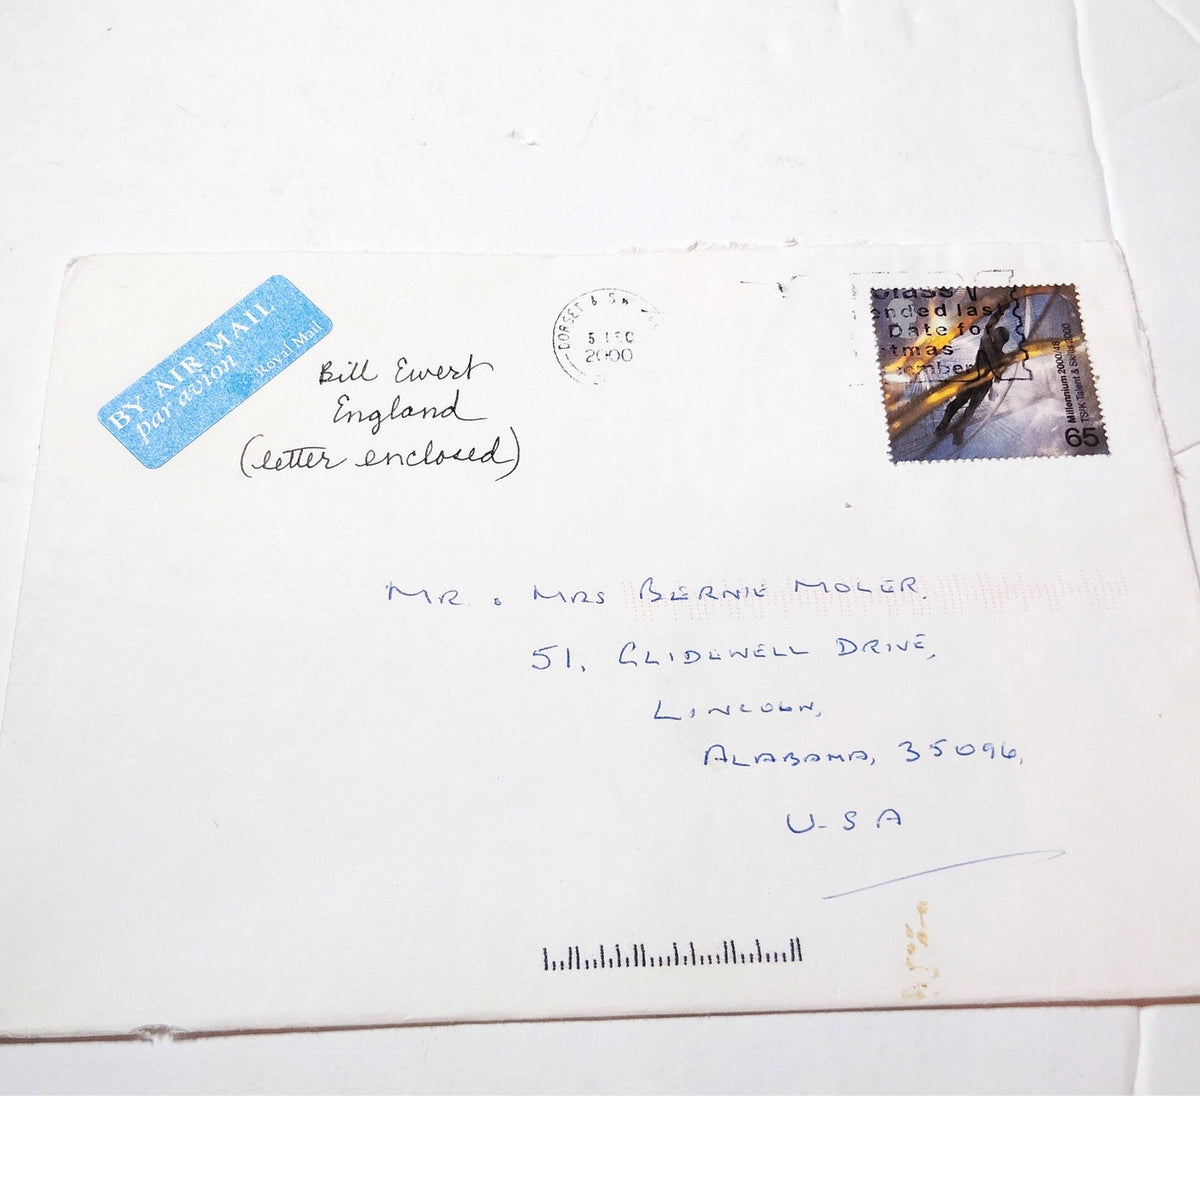 BY AIR MAIL
par avion
Royal Mail
Bill Ewert
England
(letter enclosed)
DORSET &
5 DEC
2000
class
ended last
Date fo
tmas
ember
Millennium 2000/48
TS/K Talent & Skills 2000
65
MR & MRS BERNIE MOLER,
51, GLIDEWELL DRIVE,
LINCOLN,
ALABAMA, 35096,
U-SA